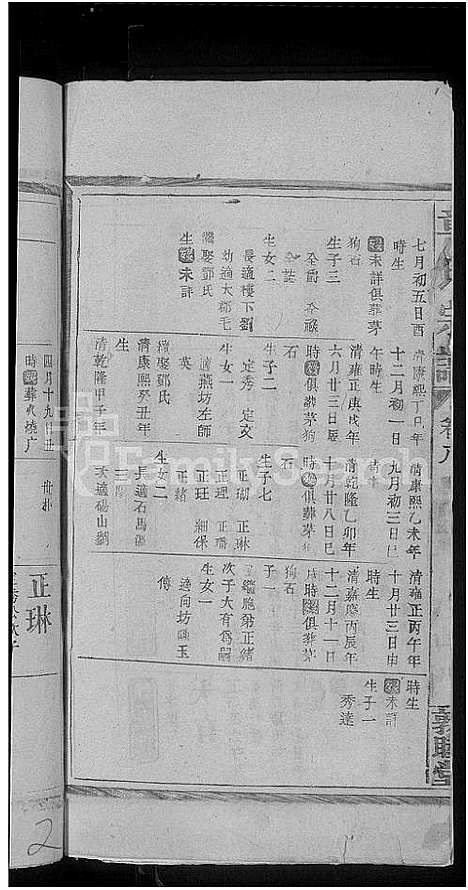 七月初五日酉
時生
歿未詳俱葬茅
狗石
生子三
生女二
長適樓下劉
幼適大郡毛
繼娶鄧氏
生歿未詳
清康熙丁巳年
十二月初一日
午時生
清雍正庚戌年
六月廿三日辰
時歿俱葬茅狗
石
生子二
定秀 定文
生女一
適燕坊左師
英
繼娶鄧氏
清康熙癸丑年
生
清乾隆甲子年
清康熙乙未年
九月初三日巳
時生
清乾隆乙卯年
十月廿八日巳
時歿俱葬茅狗
石
生子七
正瑚 正琳
正理 正璠
正玨 細保
正緒
生女二
長適石馬
次適碭山劉
清雍正丙午年
十月廿三日申
時生
清嘉慶丙辰年
十二月十一日
戌時歿俱葬茅
狗石
子一
繼胞弟正緒
次子大有為嗣
生女一
適向坊 玉
傳
時生
歿未詳
生子一
秀達
卷八
敦睦堂
四月十九日丑
時歿葬火燒广
正琳
2
FamilySearch